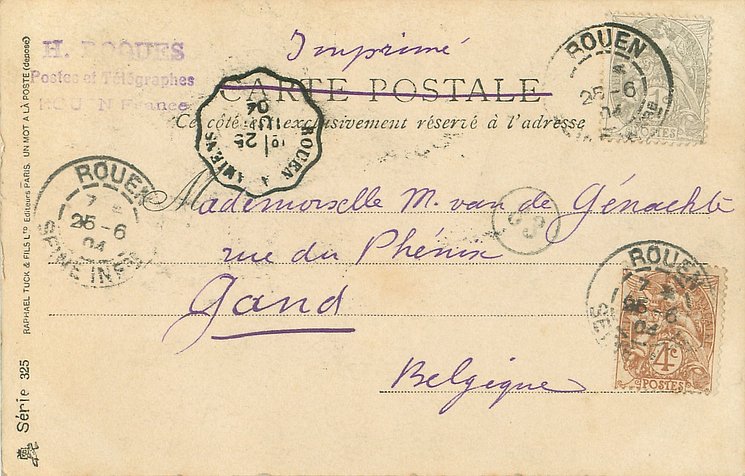 H. ROQUES
Postes et Télégraphes
ROUEN France
Imprimé
CARTE POSTALE
Ce côté est exclusivement réservé à l'adresse
ROUEN
25-6
04
ROUEN
7
25-6
04
SEINE INFRE
ROUEN A AMIENS
10 25
JUIN
04
Mademoiselle M. van de Génachte
rue du Phénix
Gand
Belgique
63
ROUEN
7
25-6
04
1c
POSTES
4c
POSTES
RAPHAEL TUCK & FILS LTD Editeurs PARIS. UN MOT A LA POSTE (deposé)
Série 325